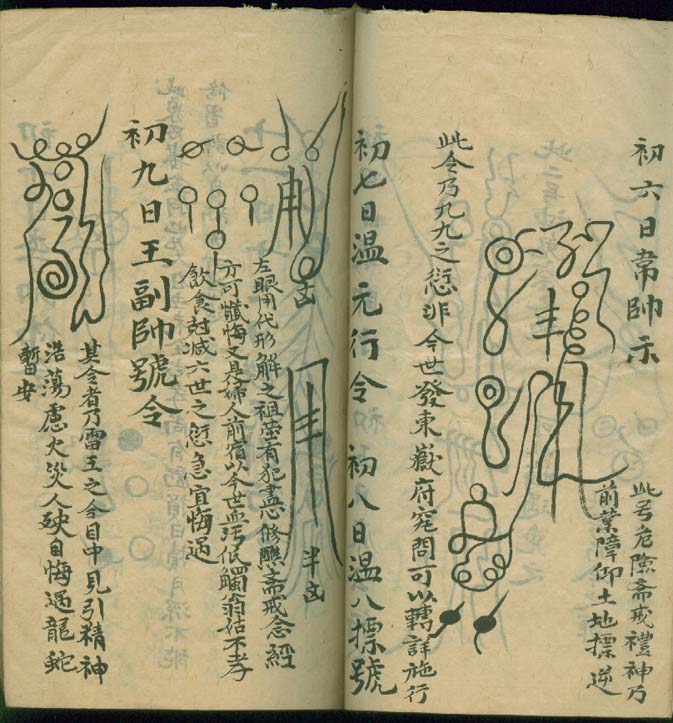 初六日韋帥示
此另危險斋戒禮神乃
前業障仰土地摽逆
此令乃九九之愆非今世發東嶽府究問可以轉詳施行
初七日温元行令 初八日温八摽號
半凶
左眼用代形解之祖塋有犯盡心修醮斋戒念經
方可懺悔又是婦人前宿以今世無
低觸翁姑不孝
飲食尅减六世之愆急宜悔過
初九日王副帥號令
其令者乃雷王之令目中見引精神
浩蕩慮火災人殃自悔過龍蛇
暫安